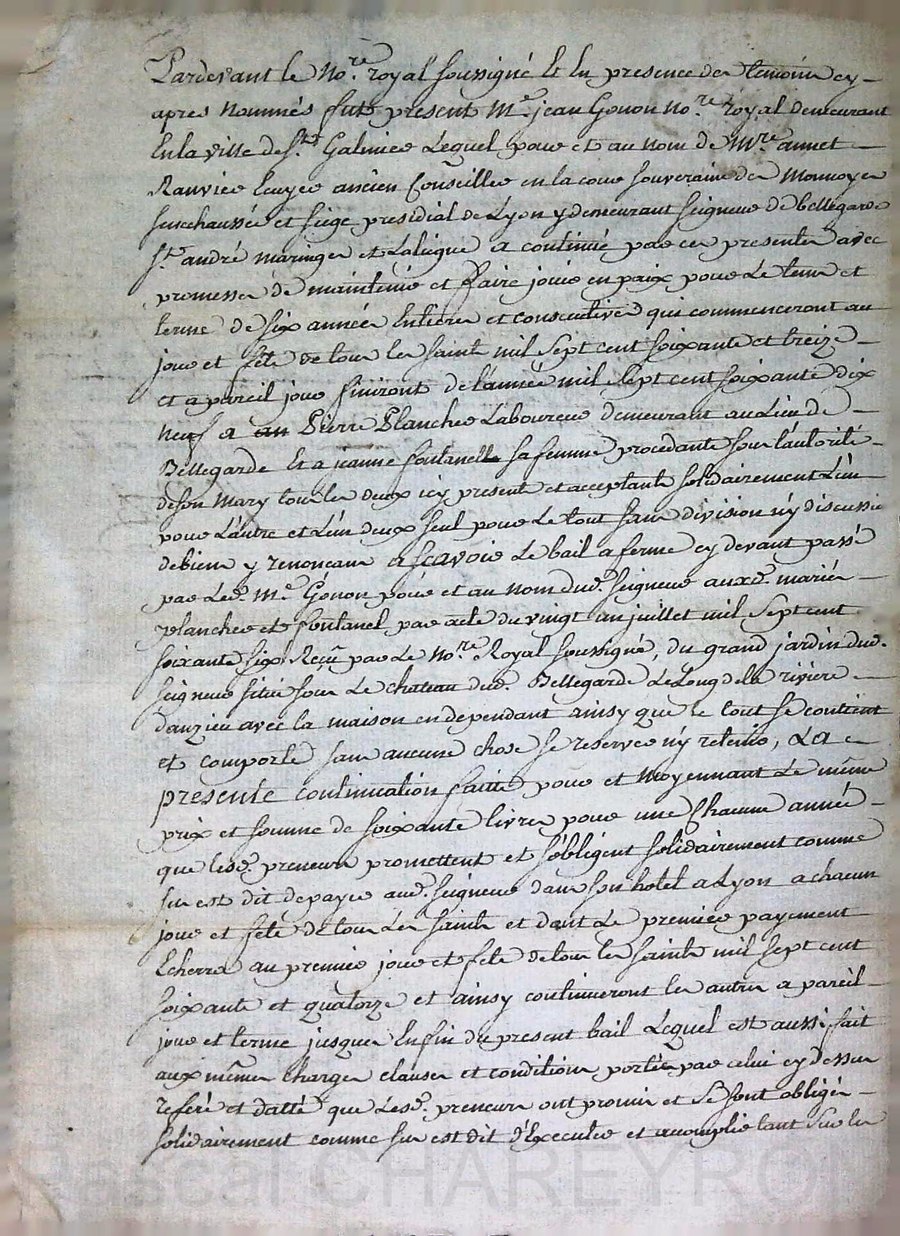 Pardevant le No.re royal soussigné Et En presence des temoins cy –
apres Nommés fut present M.e jean Gonon No.re Royal demeurant
En la ville de S.t Galmier Lequel pour et au nom de Mre annet –
Ranvier Ecuyer ancien Conseiller en la cour souveraine des Monnoyes
senechaussée et siege presidial de Lyon y demeurant seigneur de bellegarde
S.t andré maringes et Laliegue a continué par ces presentes avec
promesses de maintenir et faire jouir en paix pour Le tems et
terme de six années Entieres et consecutives qui commenceront au
jour et fête de tous les saints mil sept cent soixante et treize –
et a pareil jour finiront de l'année mil sept cent soixante dix
neuf a Pierre Plancher Laboureur demeurant au Lieu de –
Bellegarde Et a jeanne fontanelle sa femme procedante sous l'autorité –
de son Mary tous les deux icy presents et acceptants solidairement L'un
pour L'autre et L'un deux seul pour Le tout sans division n'y discussion
de biens y renoncans a scavoir Le bail a ferme cy devant passé
par Led. M.e Gonon pour et au nom dud. seigneur auxd. mariés –
plancher et fontanel par acte du vingt un juillet mil sept cent
soixante six Reçu par Le No.re Royal soussigné, du grand jardin dud.
seigneur situé sous Le chateau dud. Bellegarde Le Long de la riviere –
danzieu avec la maison en dependant ainsy que le tout se contient
et comporte sans aucune chose se reserver n'y retenir, La –
presente continuation faitte pour et Moyennant Le même
prix et somme de soixante livres pour une Chacune année –
que lesd. preneurs promettent et s'obligent solidairement comme
sus est dit de payer aud. seigneur dans son hotel a Lyon a chacun
jour et fête de tous Les saints et dont Le premier payement
Echerra au premier jour et fete de tous les saints mil sept cent
soixante et quatorze et ainsy continueront les autres a pareil –
jour et terme jusques Enfin du present bail Lequel est aussi fait
aux mêmes charges clauses et conditions portées par celui cy dessus
referé et datté que Lesd. preneurs ont promis et se sont obligés –
solidairement comme sus est dit d'Executer et accomplir tant sur les
Pascal CHAREYRON